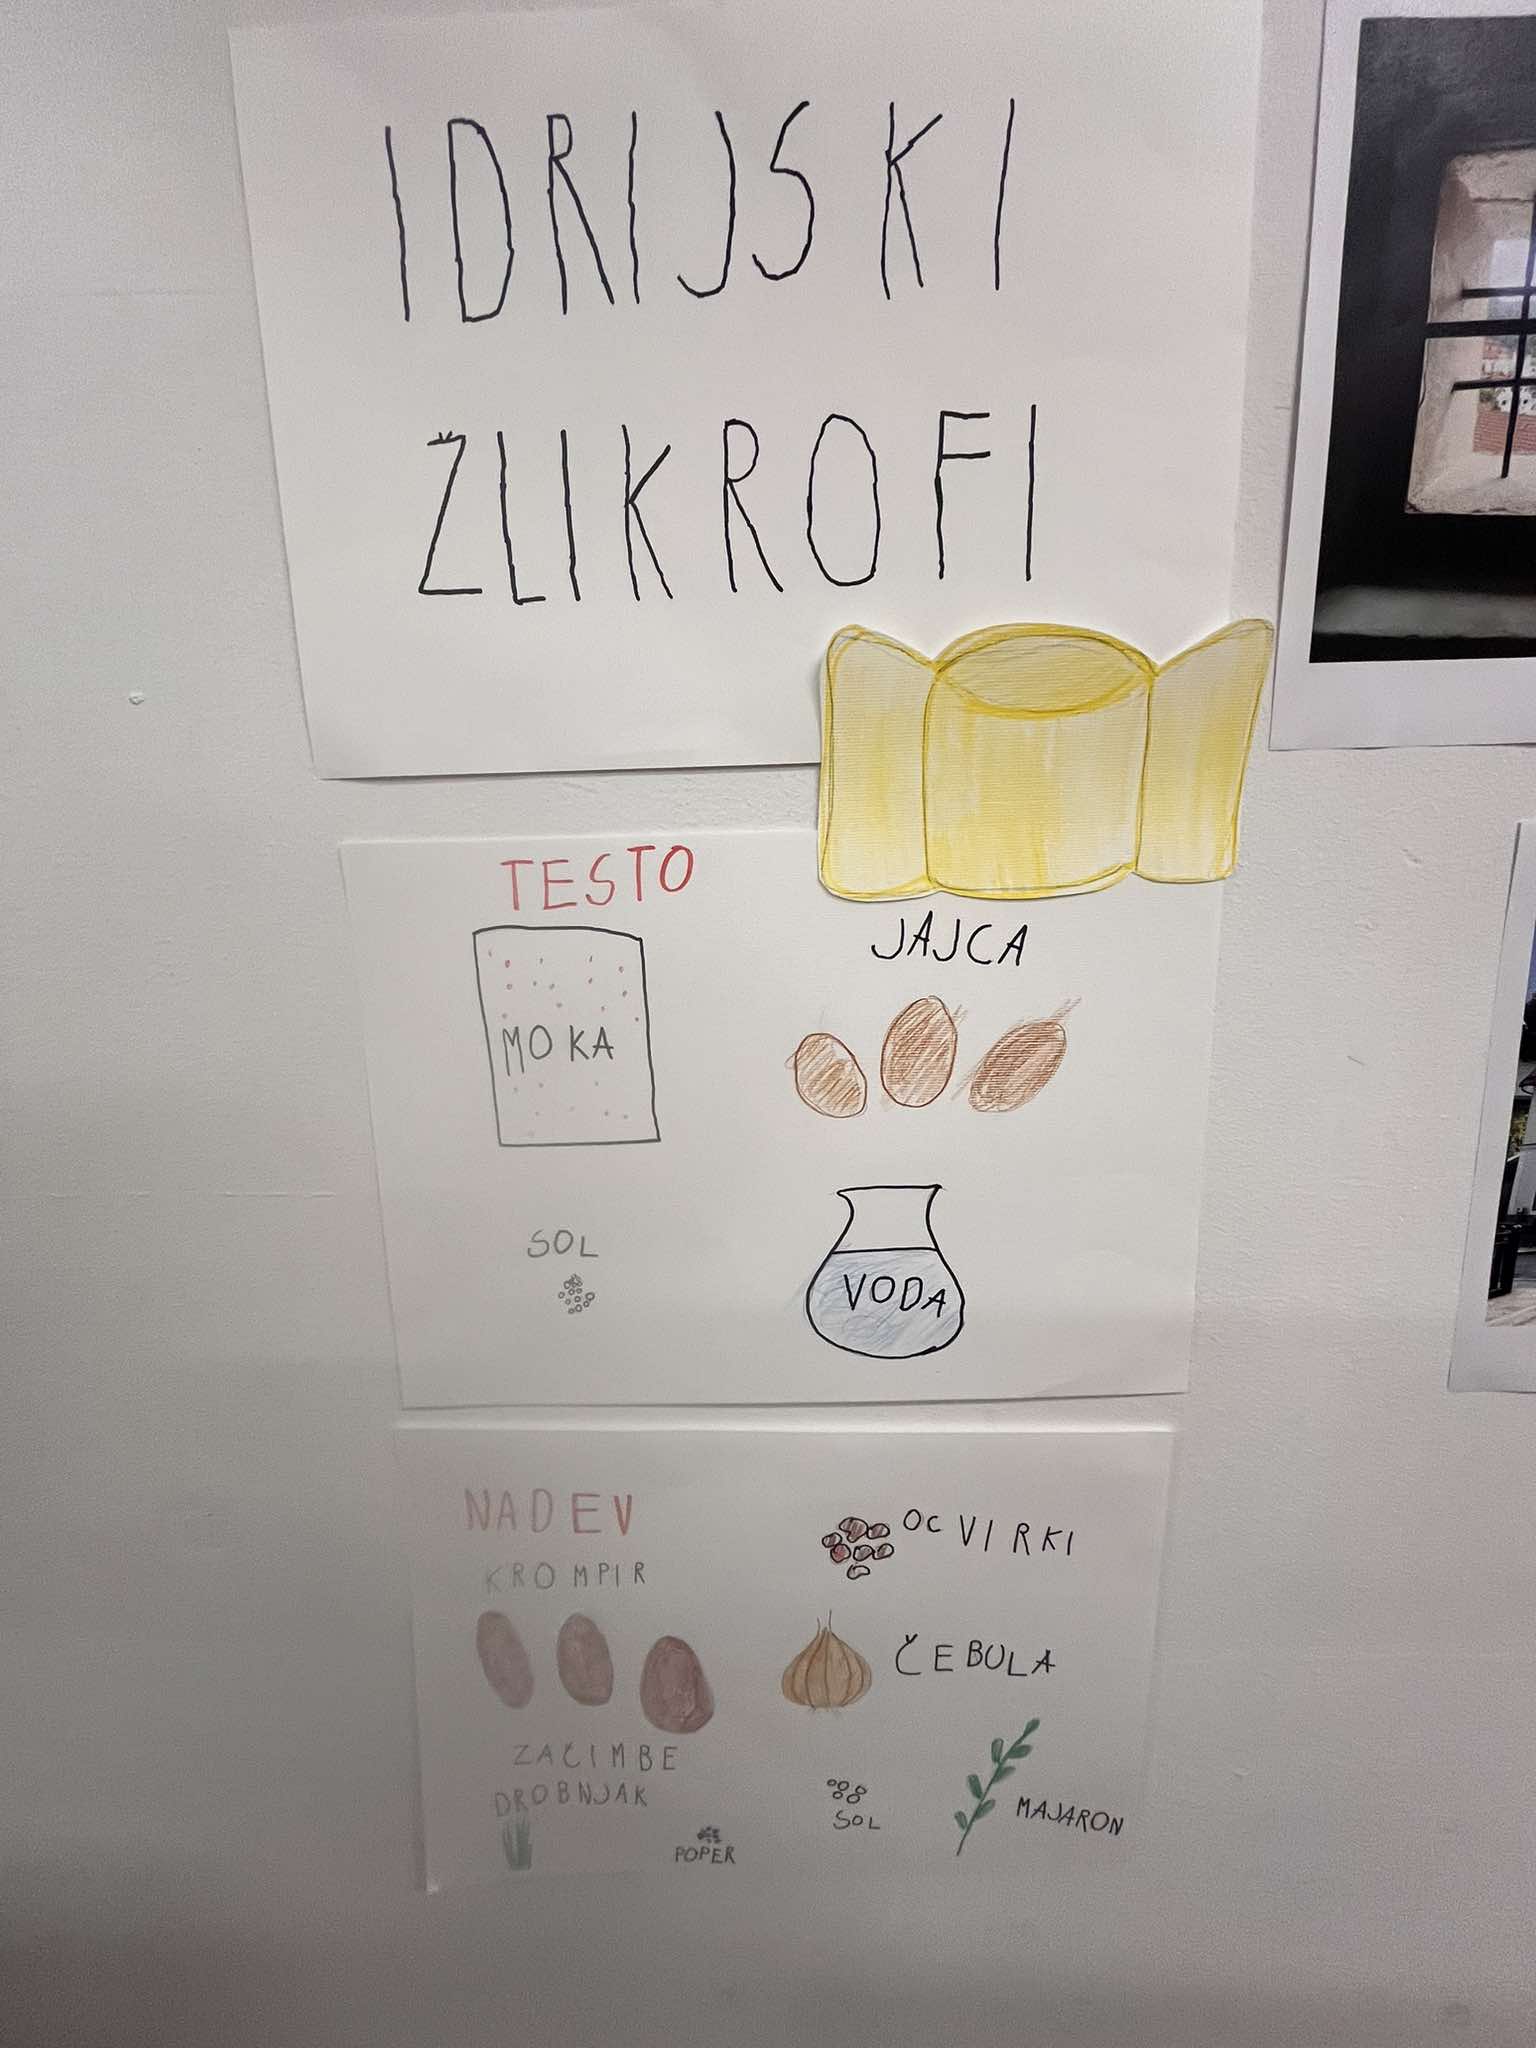 IDRIJSKI
ŽLIKROFI
TESTO
MOKA
JAJCA
SOL
VODA
NADEV
KROMPIR
OCVIRKI
ČEBULA
ZAČIMBE
DROBNJAK
POPER
SOL
MAJARON